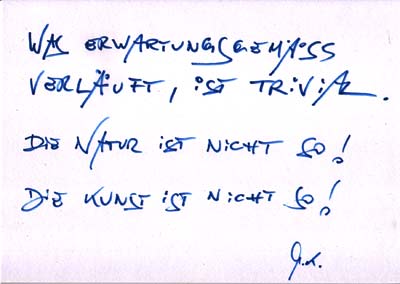 WAS ERWARTUNGSGEMÄSS
VERLÄUFT, iST TRiViAL.
DiE NATUR iST NiCHT SO!
DiE KUNST iST NiCHT SO!